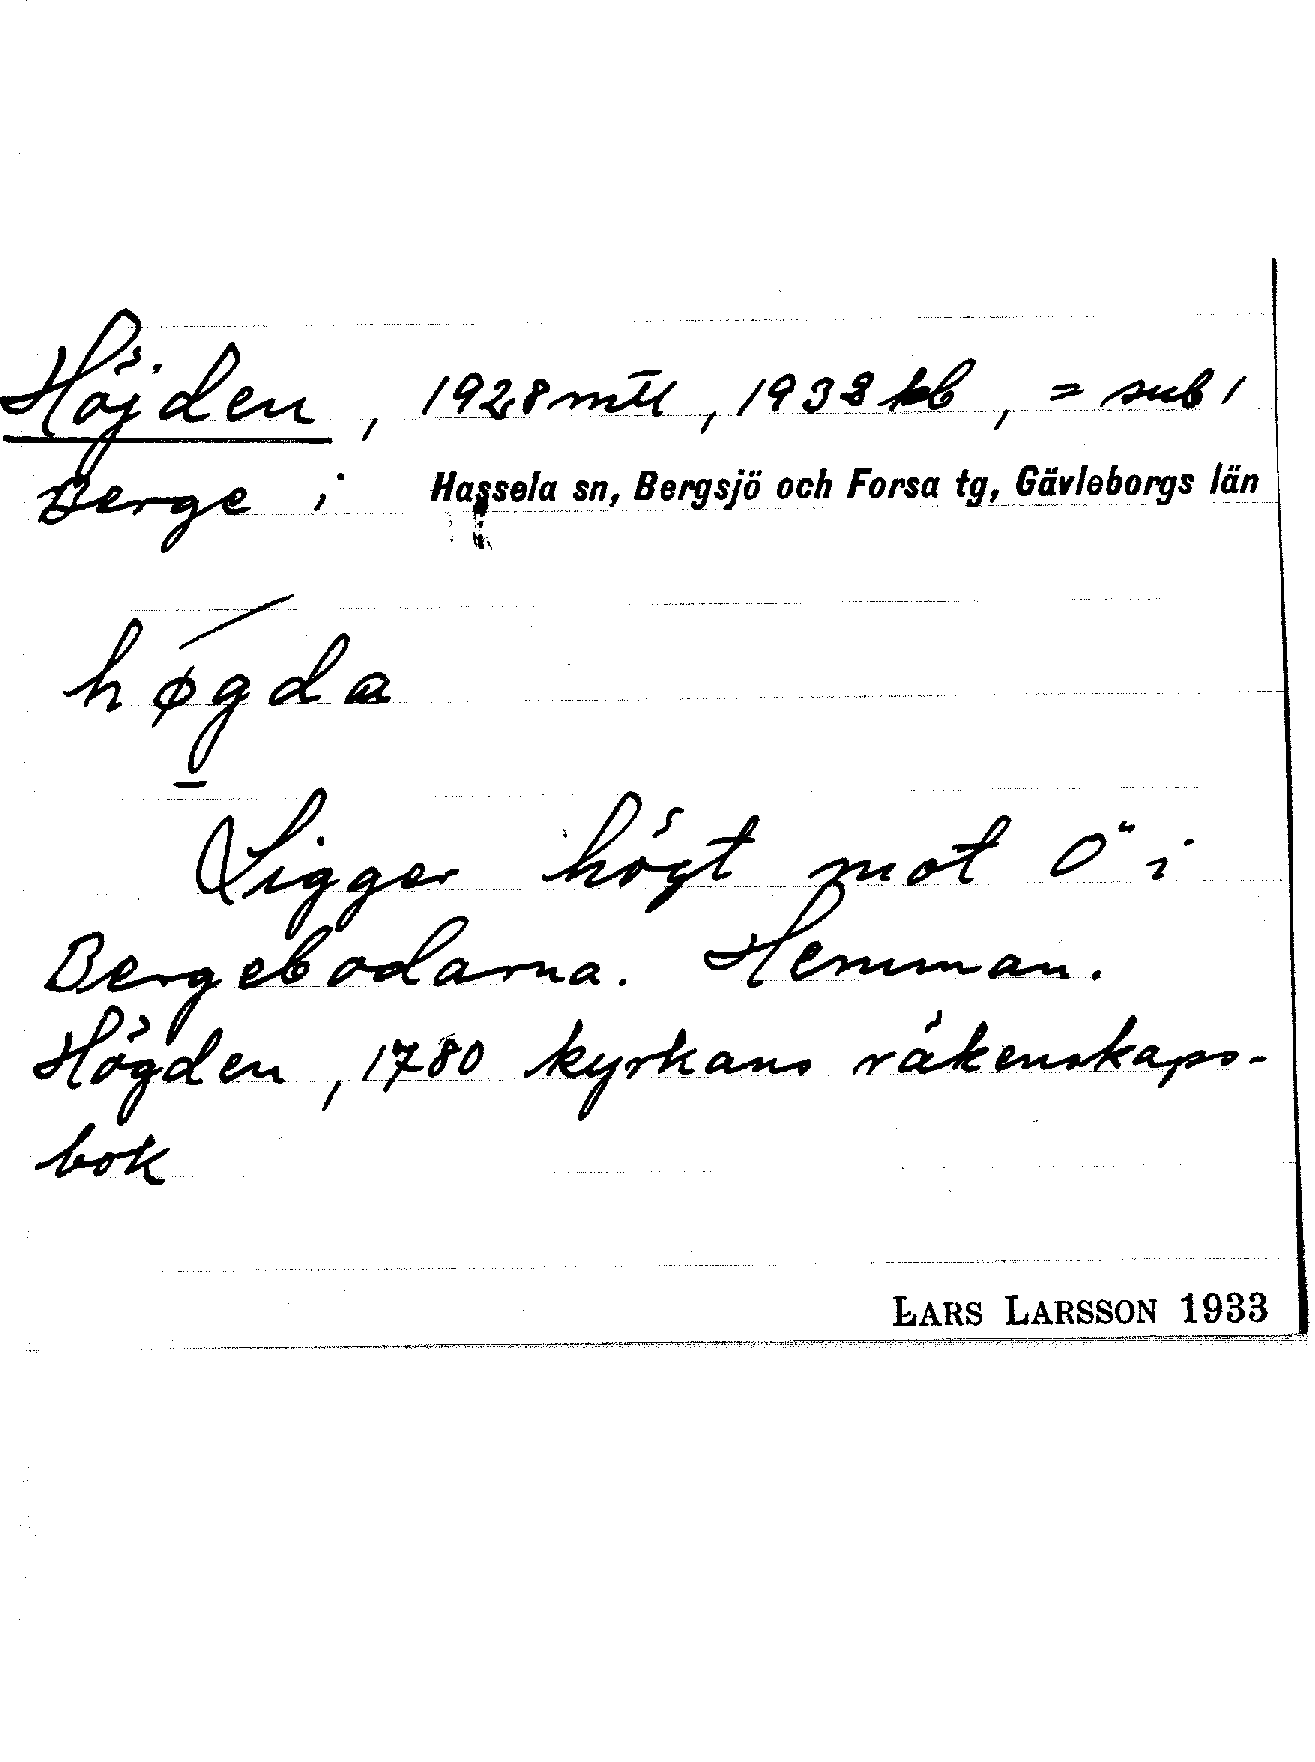 Höjden, 1928 mtl, 1933 kb, = sub 1
Berge i Hassela sn, Bergsjö och Forsa tg, Gävleborgs län
høgda
Ligger högt mot Ö i
Bergebodarna. Hemman.
Högden, 1780 kyrkans räkenskaps-
bok
LARS LARSSON 1933